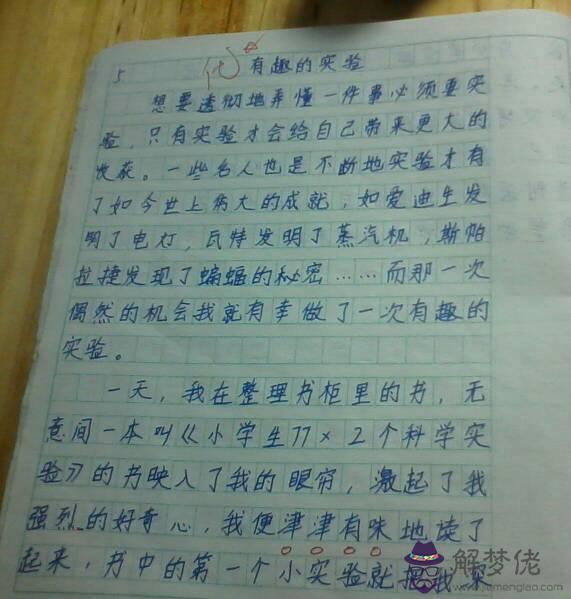 5
优
有趣的实验
想要透彻地弄懂一件事必须要实
验,只有实验才会给自己带来更大的
收获。一些名人也是不断地实验才有
了如今世上病大的成就,如爱迪生发
明了电灯,瓦特发明了蒸汽机,斯帕
拉捷发现了蝙蝠的秘密……而那一次
偶然的机会我就有幸做了一次有趣的
实验。
一天,我在整理书柜里的书,无
意间一本叫《小学生77×2个科学实
验》的书映入了我的眼帘,激起了我
强烈的好奇心,我便津津有味地读了
起来,书中的第一个小实验就把我深
解梦佬
www.jiemenglao.com